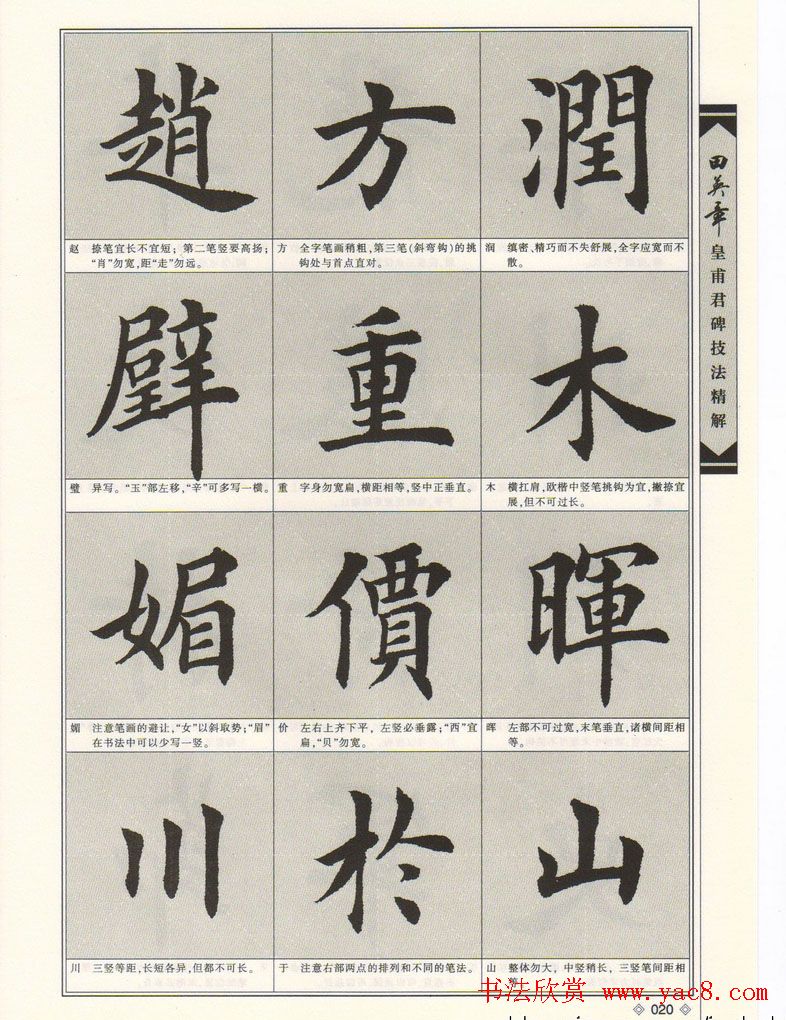 趙
方
潤
赵 捺笔宜长不宜短；第二笔竖要高扬；
“肖”勿宽，距“走”勿远。
方 全字笔画稍粗，第三笔(斜弯钩)的挑
钩处与首点直对。
润 缜密、精巧而不失舒展，全字应宽而不
散。
璧
重
木
璧 异写。“玉”部左移，“辛”可多写一横。
重 字身勿宽扁，横距相等，竖中正垂直。
木 横扛肩，欧楷中竖笔挑钩为宜，撇捺宜
展，但不可过长。
媚
價
暉
媚 注意笔画的避让，“女”以斜取势；“眉”
在书法中可以少写一竖。
价 左右上齐下平，左竖必垂露；“西”宜
扁，“贝”勿宽。
晖 左部不可过宽，末笔垂直，诸横间距相
等。
川
於
山
川 三竖等距，长短各异，但都不可长。
于 注意右部两点的排列和不同的笔法。
山 整体勿大，中竖稍长，三竖笔间距相
田英章皇甫君碑技法精解
书法欣赏 www.yac8.com
020